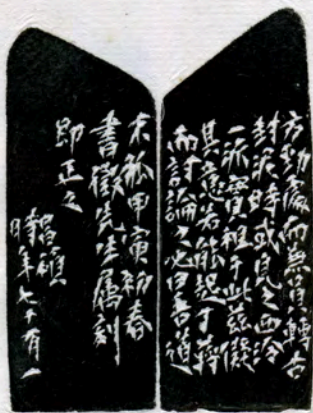 方勁處而無轉古
封泥時或見之西泠
一派實祖于此茲擬
其意若能起丁蔣
而討論之必曰善道
甲寅初春
書徵先生屬刻
即正之
時年七十有一